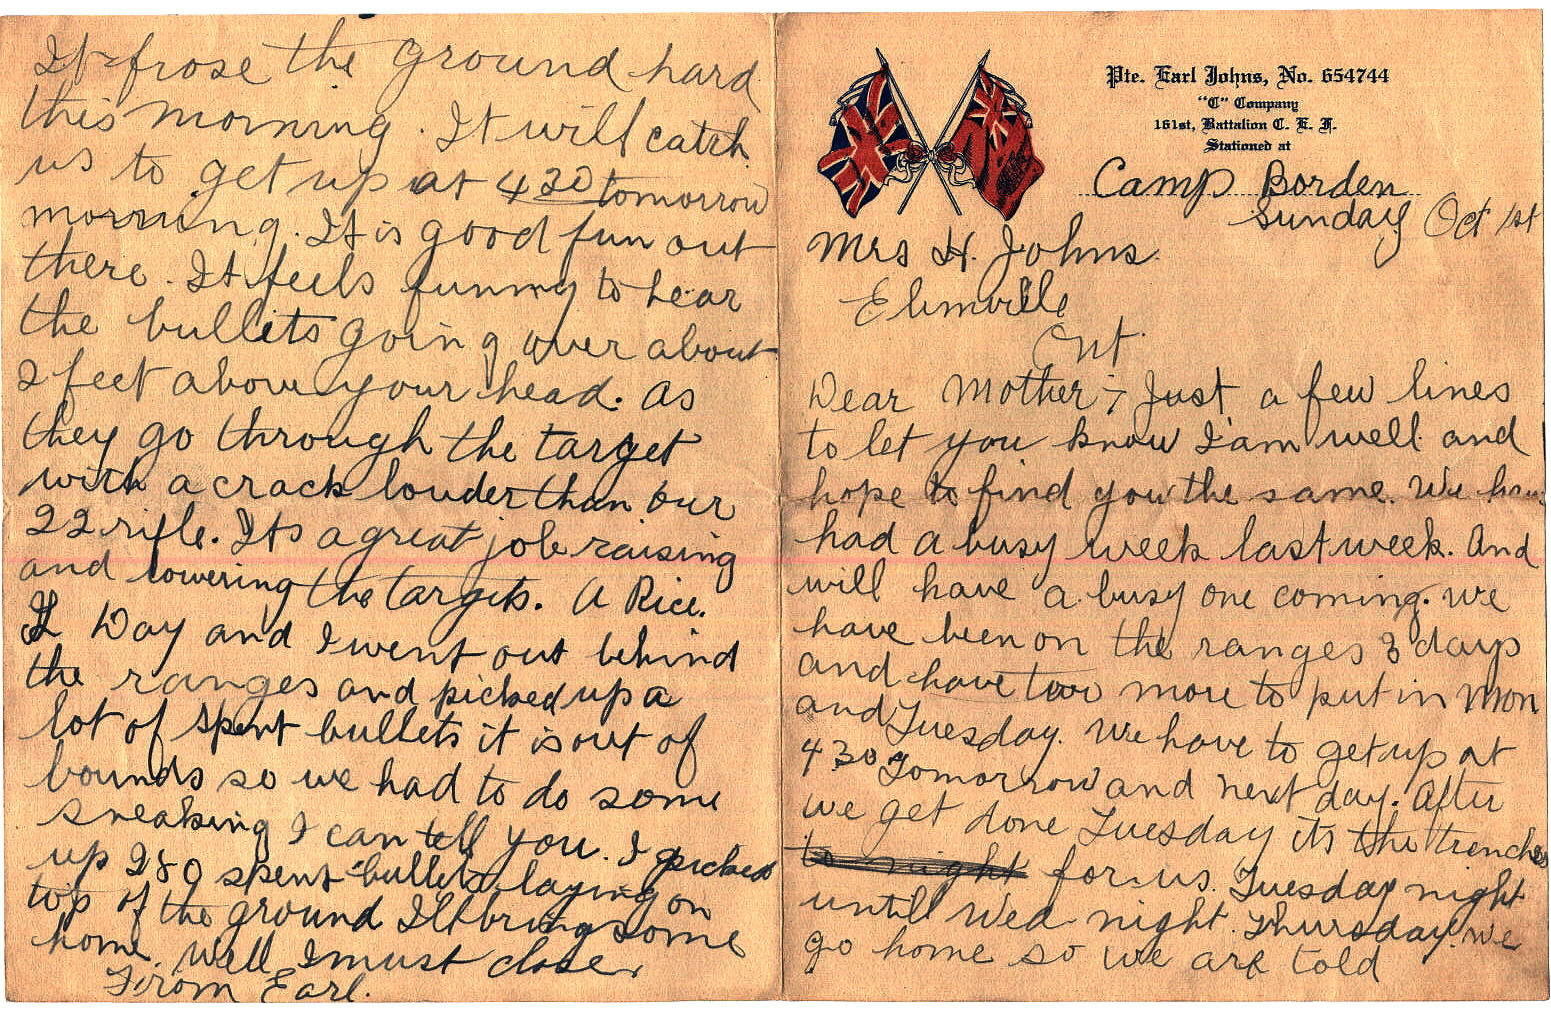 Pte. Earl Johns, No. 654744
"C" Company
161st, Battalion C. E. F.
Stationed at
Camp Borden
Sunday Oct 1st
Mrs H. Johns
Elimville
Ont.
Dear Mother; Just a few lines
to let you know I am well and
hope to find you the same. We have
had a busy week last week. And
will have a busy one coming. We
have been on the ranges 3 days
and have two more to put in Mon
and Tuesday. We have to get up at
430 Tomorrow and next day. After
we get done Tuesday its the trenches
to night for us. Tuesday night
until Wed night. Thursday we
go home so we are told
It frose the ground hard
this morning. It will catch
us to get up at 430 tomorrow
morning. It is good fun out
there. It feels funny to hear
the bullets going over about
2 feet above your head. As
they go through the target
with a crack louder than our
22 rifle. Its a great job raising
and lowering the targets. A Rice.
I Day and I went out behind
the ranges and picked up a
lot of spent bullets it is out of
bounds so we had to do some
sneaking I can tell you. I picked
up 280 spent bullets laying on
top of the ground Ill bring some
home. Well I must close
From Earl.